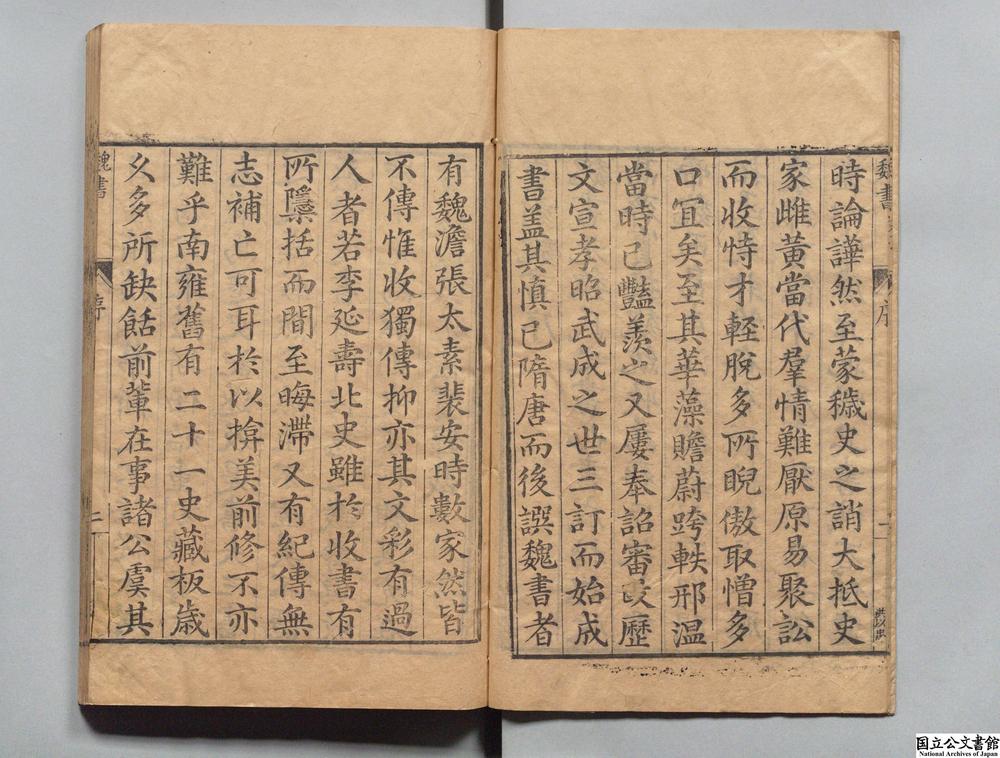 魏書
序
時論譁然至蒙穢史之誚大抵史
家雌黃當代羣情難厭原易聚訟
而收恃才輕脫多所睨傲取憎多
口冝矣至其華藻贍蔚跨軼邢溫
當時已豔羨之又屢奉詔審攺歷
文宣孝昭武成之世三訂而始成
書盖其慎已隋唐而後譔魏書者
有魏澹張太素裴安時數家然皆
不傳惟收獨傳抑亦其文彩有過
人者若李延壽北史雖於收書有
所隱括而間至晦滯又有紀傳無
志補亡可耳於以揜美前修不亦
難乎南雍舊有二十一史藏板歲
久多所缺餂前輩在事諸公虞其
魏書
序
国立公文書館
National Archives of Japan